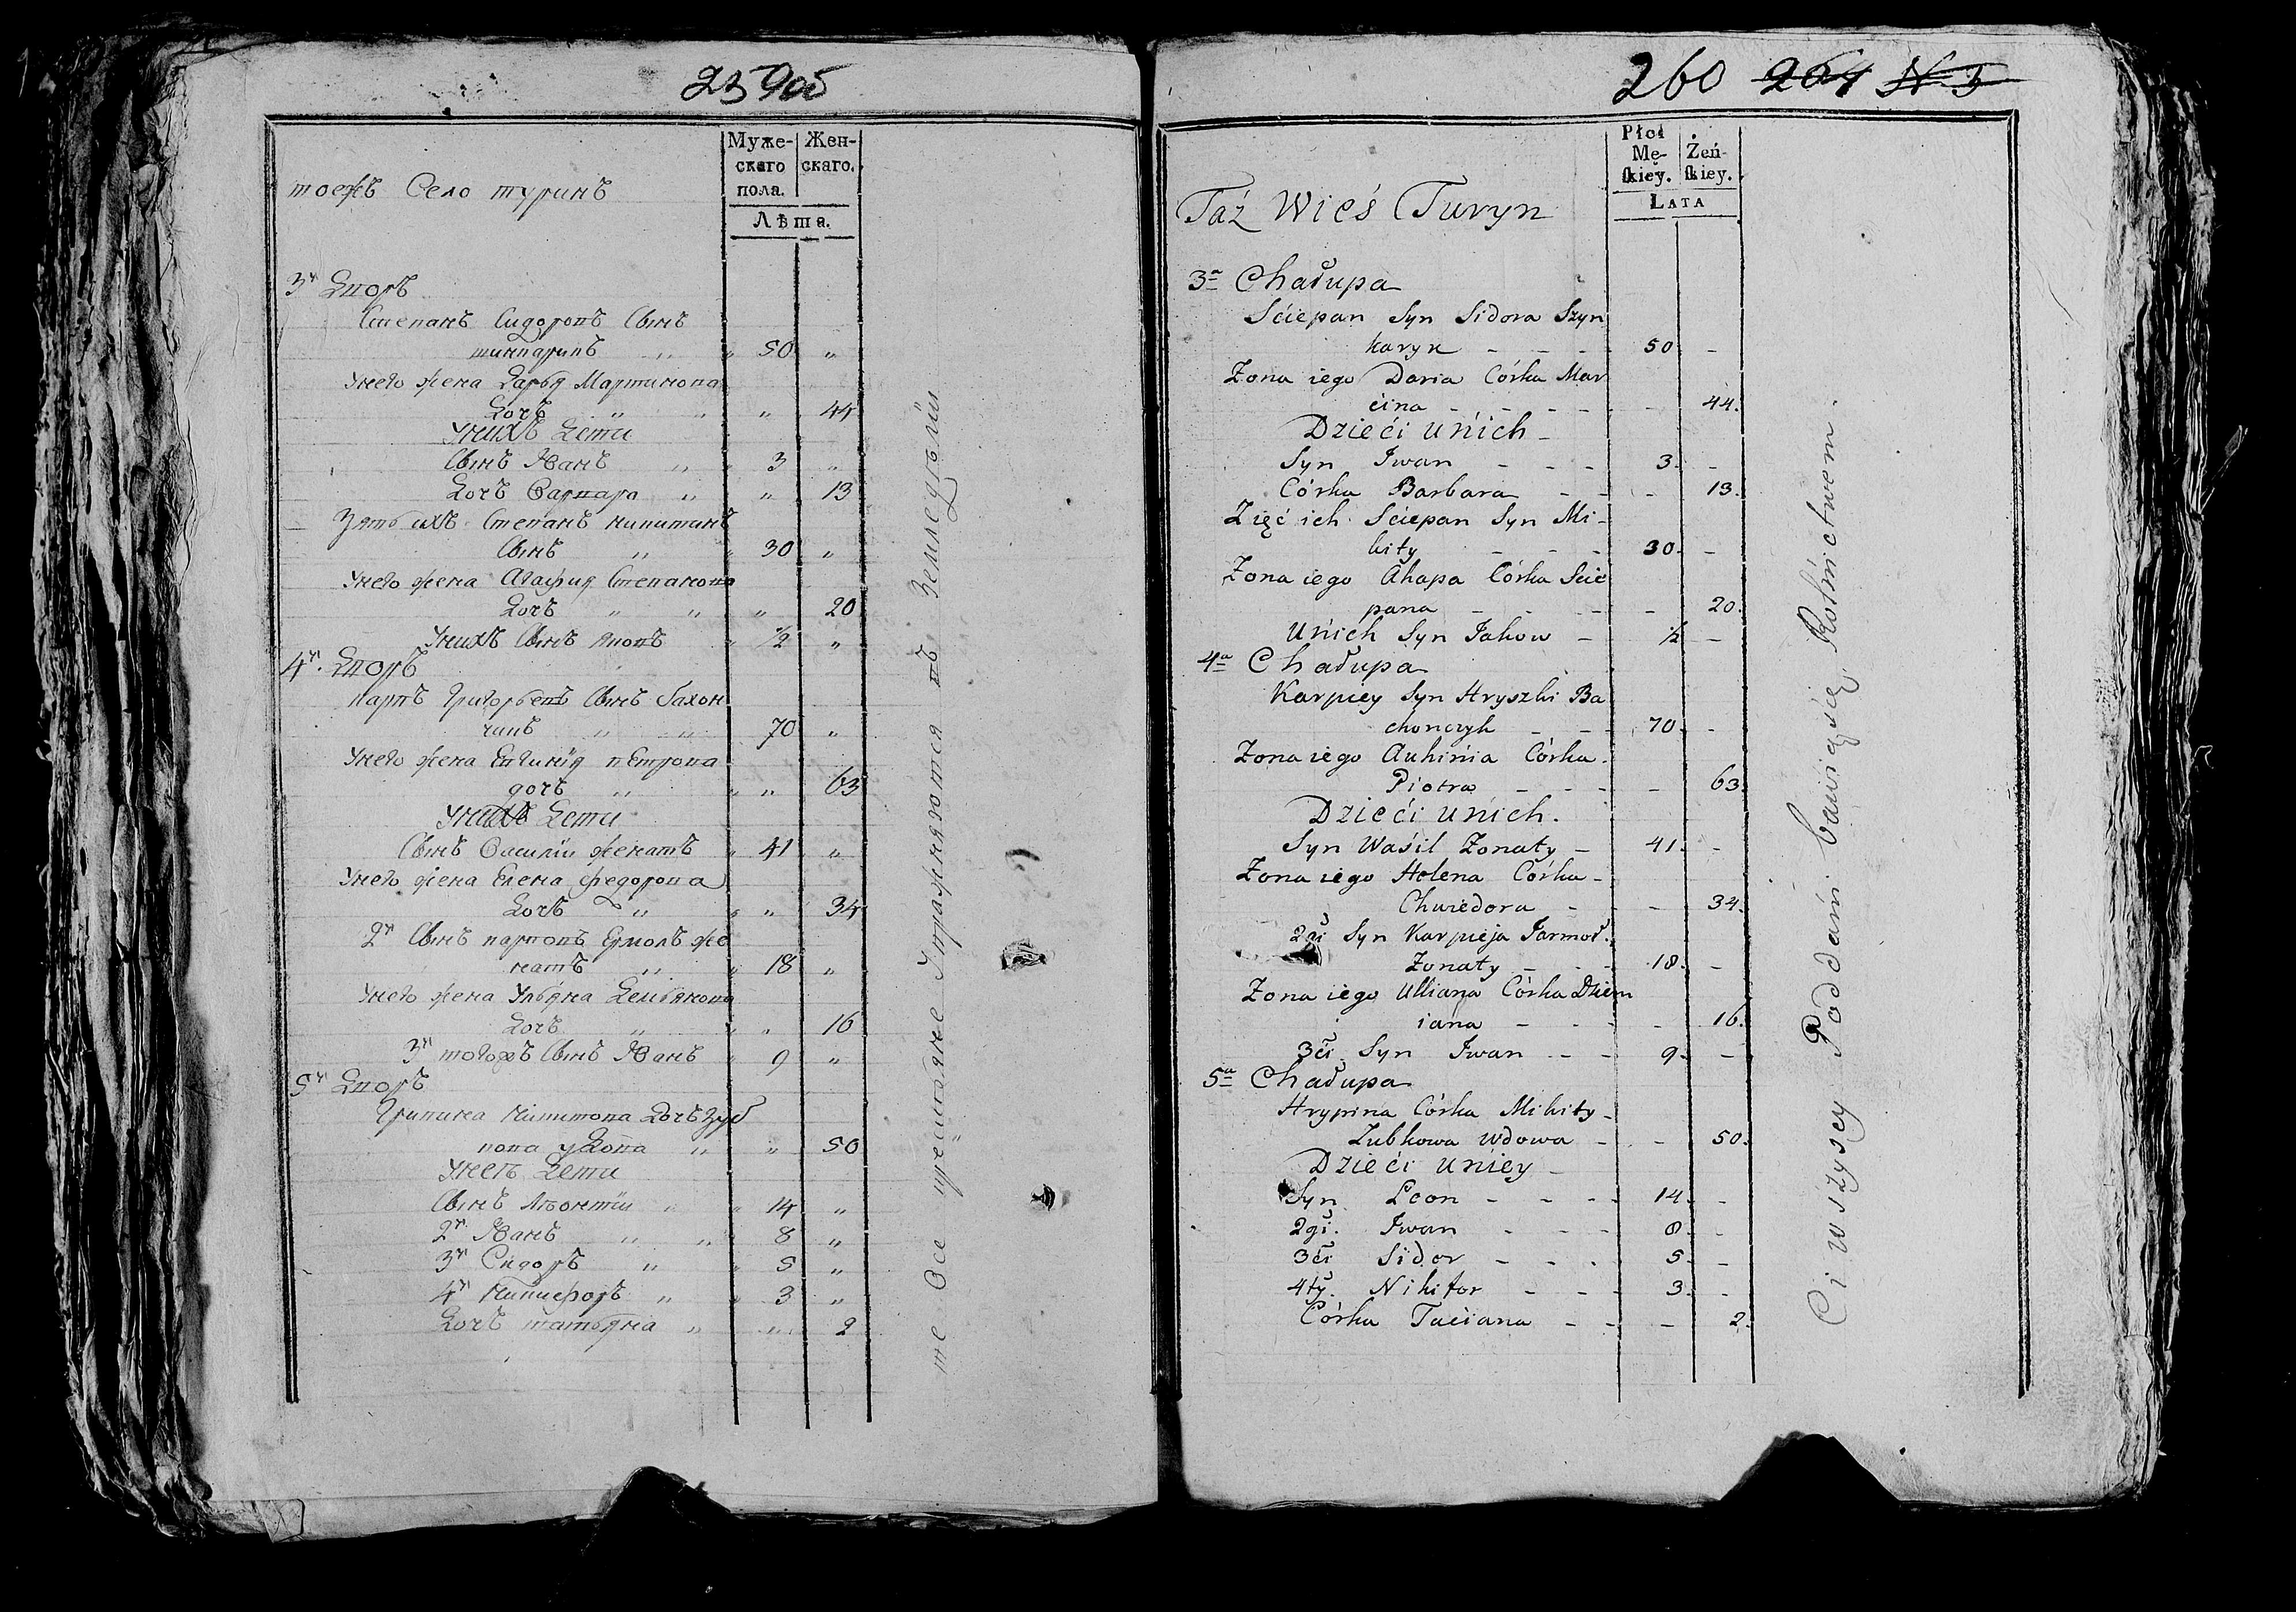 259об
Муже-
скаго
пола.
Жен-
скаго.
Лѣта.
тоежъ Село туринъ
3й Дворъ
Степанъ Сидоровъ Сынъ
шинкаринъ „ „ 50 „
Унего жена Дарья Мартинова
Дочъ „ „ „ 44
Унихъ Дети
Сынъ Иванъ „ „ 3 „
Дочъ Варвара „ „ 13
Зять ихъ Степанъ никитинъ
Сынъ „ „ 30 „
Унего жена Агафия Степанова
Дочъ „ „ „ 20
Унихъ Сынъ яковъ „ ½ „
4й Дворъ
карпъ Григорьевъ Сынъ бахон
чикъ „ „ 70 „
Унего жена Евгинія петрова
дочъ „ „ „ 63
Унихъ Дети
Сынъ Василій женатъ „ 41 „
Унего жена Елена федорова
Дочъ „ „ „ 34
2й Сынъ карповъ Ермолъ же
натъ „ „ 18 „
Унего жена Ульяна Демьянова
Дочъ „ „ „ 16
3й тогожъ Сынъ Иванъ „ 9 „
5й Дворъ
Грипина Никитова Дочъ зуб
кова удова „ „ 50
Унеѣ Дети
Сынъ Леонтій „ „ 14 „
2й Иванъ „ „ 8 „
3й Сидоръ „ „ 5 „
4й Никифоръ „ „ 3 „
Дочъ татьяна „ „ 2
те Все крестьяне Упражняются въ Земледѣліи
260 264 N. 5
Płci
Mę-
skiey.
Żeń-
skiey.
LATA
Taż Wieś Turyn
3a Chałupa
Sciepan Syn Sidora Szyn
karyk - - - 50 -
Zona iego Daria Córka Mar
cina - - - - - 44.
Dzieći unich -
Syn Iwan - - - 3. -
Córka Barbara - - - 13.
Zięć ich Sciepan Syn Mi-
kity - - - 30. -
Zona iego Ahapa Córka Scie
pana - - - - 20.
Unich Syn Jakow - ½ -
4a Chałupa
Karpiey Syn Hryszki Ba
chonczyk - - - 70. -
Zona iego Auhinia Córka.
Piotra - - - - 63.
Dzieći unich.
Syn Waśil Zonaty - 41. -
Zona iego Helena Córka -
Chwiedora - - 34.
2gi Syn Karpieja Jarmoł.
Zonaty - - - 18. -
Zona iego Ulliana Córka Dziem
iana - - - - 16.
3ći Syn Iwan - - 9. -
5a Chałupa
Hrypina Córka Mikity -
Zubkowa wdowa - - 50.
Dzieći uniey -
Syn Leon - - - - 14. -
2gi. Iwan - - - 8. -
3ći Sidor - - - - 5. -
4ty. Nikifor - - - 3. -
Córka Taciana - - - 2.
Ci wszyscy Poddani bawią się Rolnictwem.